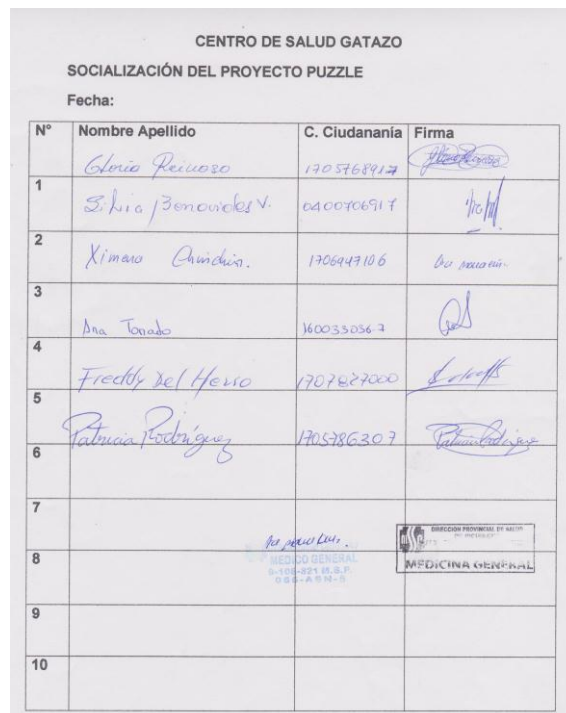 CENTRO DE SALUD GATAZO
SOCIALIZACIÓN DEL PROYECTO PUZZLE
Fecha:
N° Nombre Apellido C. Ciudananía Firma
Gloria Reinoso 1705768917
1
Silvia Benavides V. 0400706917
2
Ximena 1706947106
3
Ana 160033056-7
4
Freddy Del Hierro 1707827000
5
Patricia Rodríguez 1705786307
6
7
DIRECCION PROVINCIAL DE SALUD
8 MEDICO GENERAL MEDICINA GENERAL
9
10